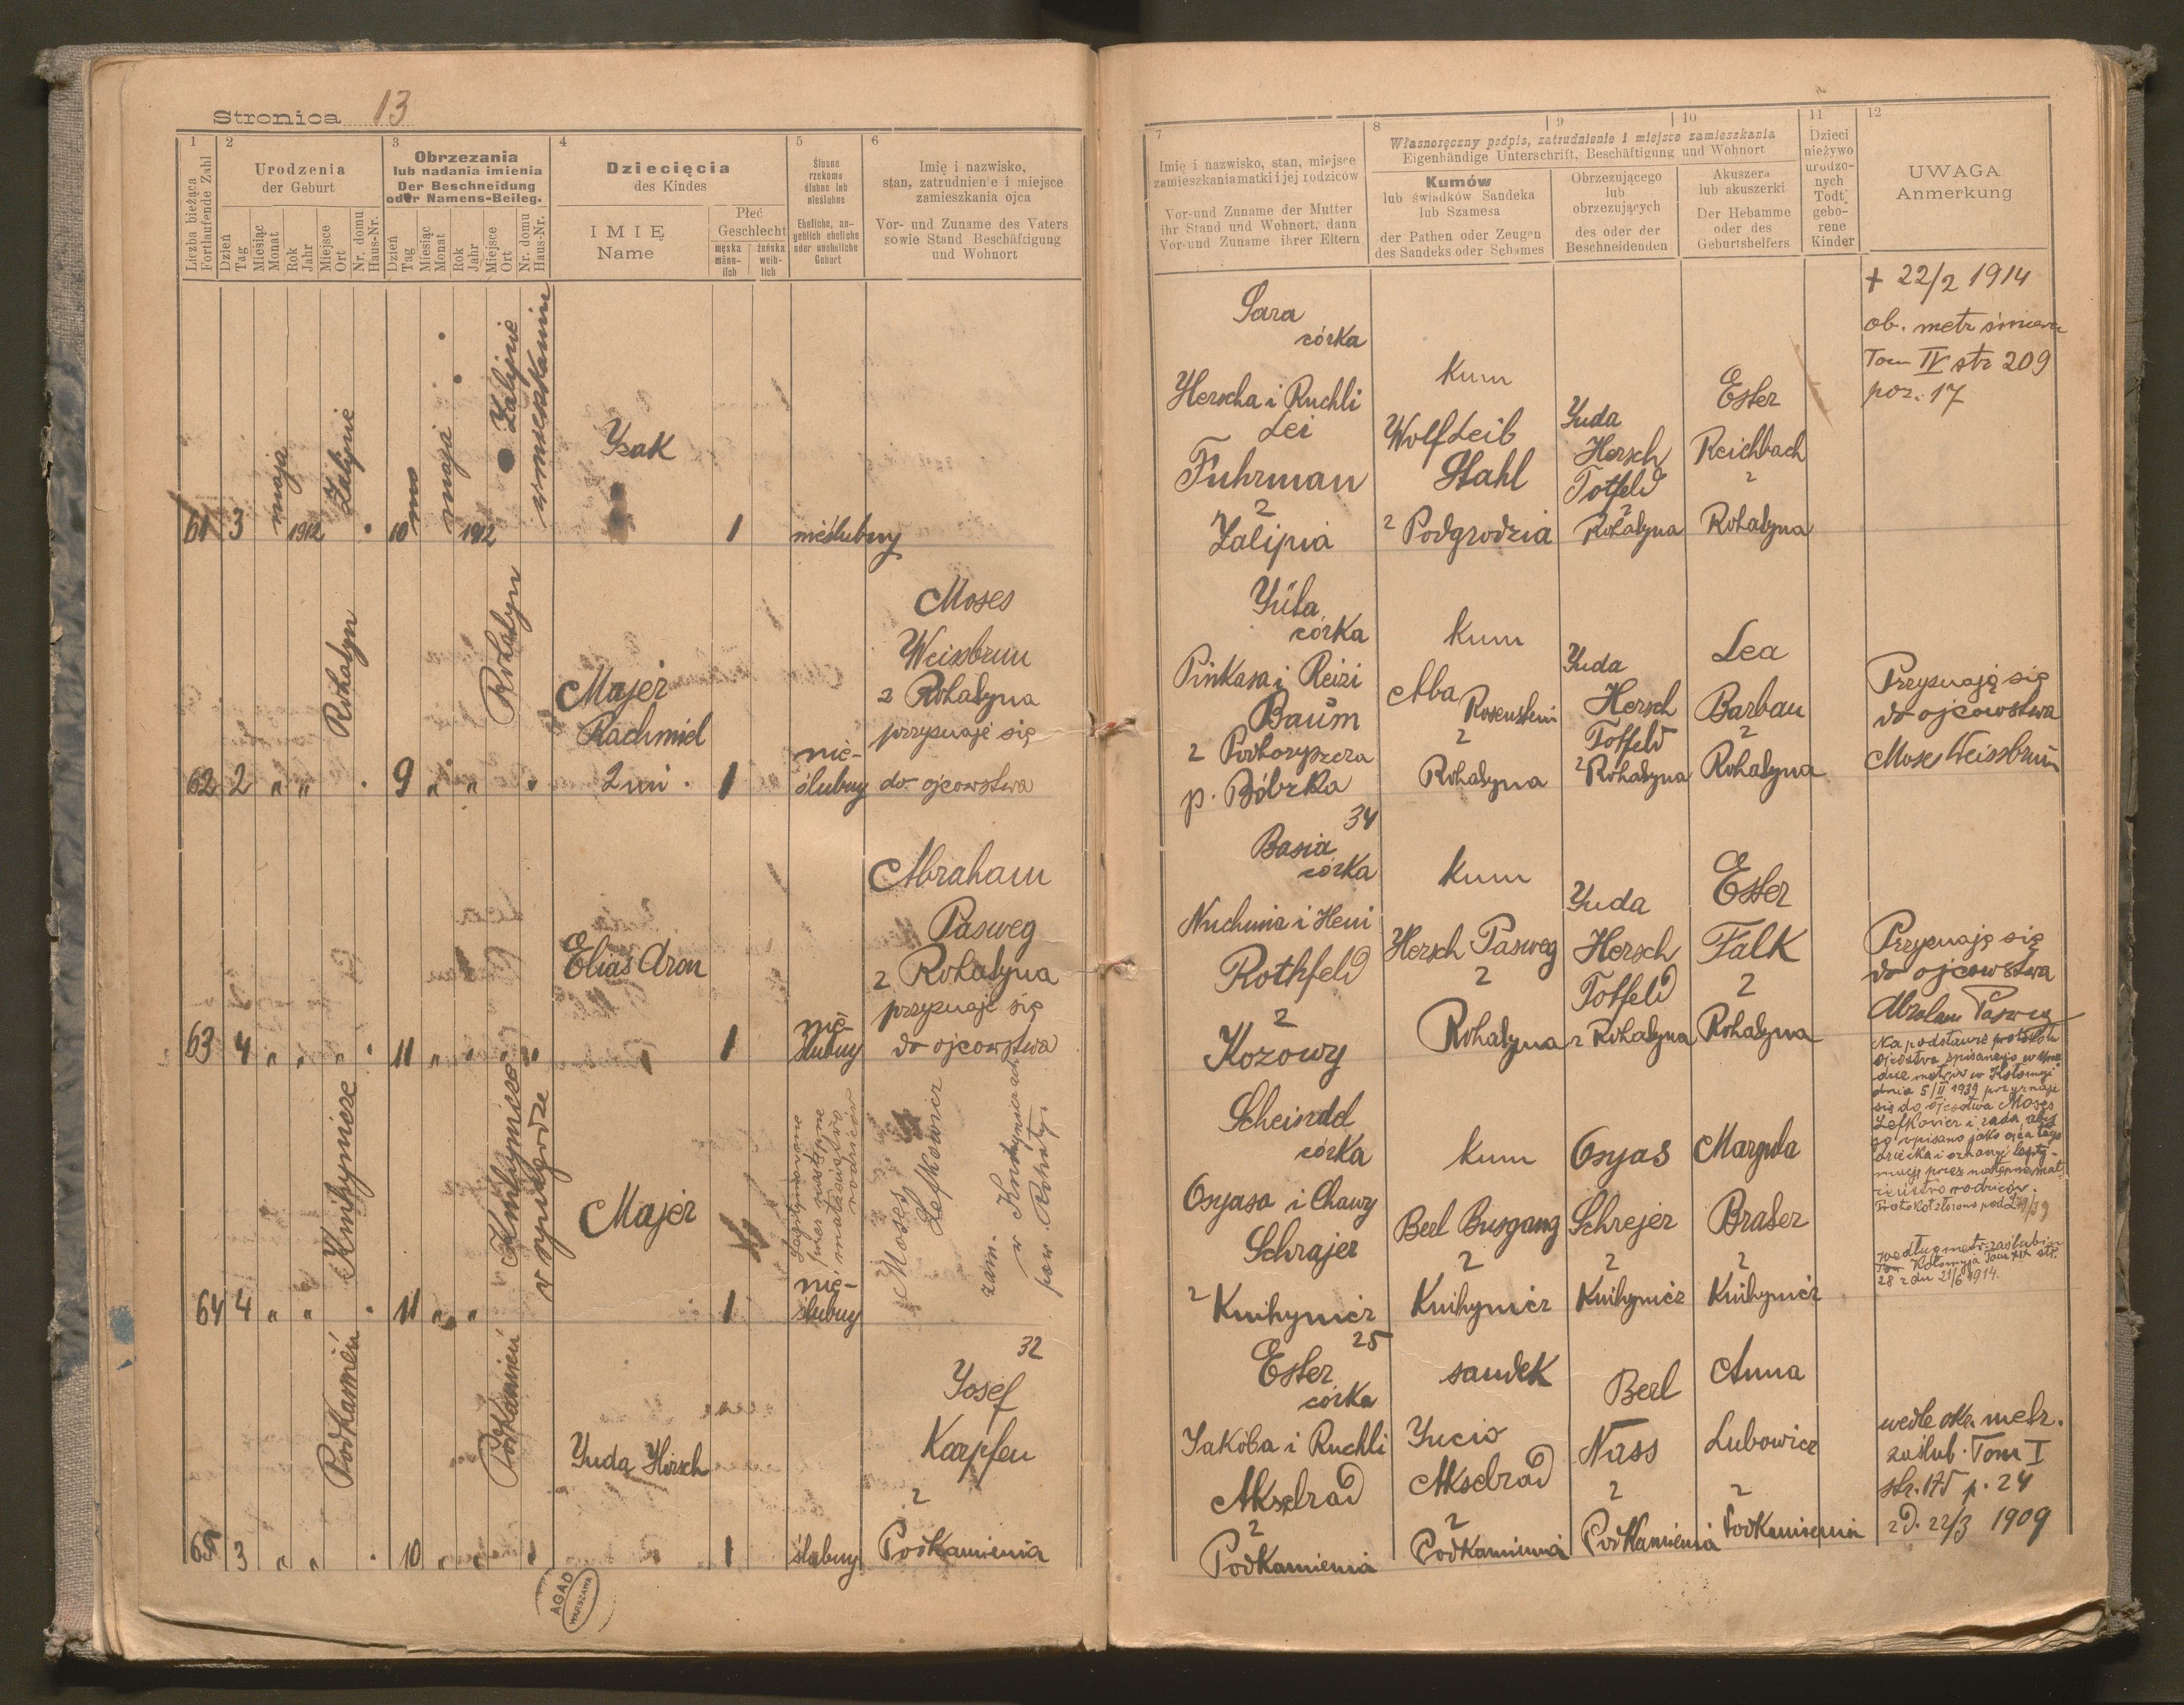 Stronica 13
1
Liczba bieżąca
Fortlaufende Zahl
2
Urodzenia
der Geburt
Dzień
Tag
Miesiąc
Monat
Rok
Jahr
Miejsce
Ort
Nr. domu
Haus-Nr.
3
Obrzezania
lub nadania imienia
Der Beschneidung
oder Namens-Beileg.
Dzień
Tag
Miesiąc
Monat
Rok
Jahr
Miejsce
Ort
Nr. domu
Haus-Nr.
4
Dziecięcia
des Kindes
IMIĘ
Name
Płeć
Geschlecht
męska
männ-
lich
żeńska
weib-
lich
5
Ślubne
rzekomo
ślubne lub
nieślubne
Eheliche, an-
geblich eheliche
oder uneheliche
Geburt
6
Imię i nazwisko,
stan, zatrudnienie i miejsce
zamieszkania ojca
Vor- und Zuname des Vaters
sowie Stand Beschäftigung
und Wohnort
7
Imię i nazwisko, stan, miejsce
zamieszkania matki i jej rodziców
Vor-und Zuname der Mutter
ihr Stand und Wohnort, dann
Vor-und Zuname ihrer Eltern
8
9
10
Własnoręczny podpis, zatrudnienie i miejsce zamieszkania
Eigenhändige Unterschrift, Beschäftigung und Wohnort
Kumów
lub świadków Sandeka
lub Szamesa
der Pathen oder Zeugen
des Sandeks oder Schames
Obrzezującego
lub
obrzezujących
des oder der
Beschneidenden
Akuszera
lub akuszerki
Der Hebamme
oder des
Geburtshelfers
11
Dzieci
nieżywo
urodzo-
nych
Todt
gebo-
rene
Kinder
12
UWAGA
Anmerkung
61
3
maja
1912
Zalipie
10
maja
1912
Zalipie
w mieszkaniu
Izak
1
nieślubny
Sara
córka
Herscha i Ruchli
Lei
Fuhrman
z
Zalipia
kum
Wolf Leib
Stahl
z Podgrodzia
Yuda
Hersch
Totfeld
z
Rohatyna
Ester
Reichbach
z
Rohatyna
+ 22/2 1914
ob. metr śmierci
Tom IV str 209
poz. 17
62
2
" "
Rohatyn
9
" "
Rohatyn
"
Majer
Rachmiel
2 im.
1
nie-
ślubny
Moses
Weissbrun
z Rohatyna
przyznaje się
do ojcowstwa
Yüta
córka
Pinkasa i Reizi
Baum
z Podhoryszcza
p. Bóbrka
kum
Aba Rosenstein
z
Rohatyna
Yuda
Hersch
Totfeld
z Rohatyna
Lea
Barbau
z
Rohatyna
Przyznaję się
do ojcowstwa
Moses Weissbrun
63
4
" " "
11
" " " "
Elias Aron
1
nie-
ślubny
Abraham
Pasweg
z Rohatyna
przyznaje się
do ojcowstwa
34
Basia
córka
Nuchima i Heni
Rothfeld
z
Kozowy
kum
Hersch Pasweg
z
Rohatyna
Yuda
Hersch
Totfeld
z Rohatyna
Ester
Falk
z
Rohatyna
Przyznaję się
do ojcowstwa
Abraham Pasweg
64
4
" "
Knihynicze
11
" "
Knihynicze
Majer
1
Legitymowane
przez następne
małżeństwo
rodziców
nie-
ślubny
Moses
Lefkowicz
zam.
w Knihyniczach
pow. Rohatyn
Scheindel
córka
Osyasa i Chawy
Schrajer
z
Knihynicz
kum
Berl Busgang
z
Knihynicz
Osyas
Schrejer
z
Knihynicz
Margula
Brater
z
Knihynicz
Na podstawie protokołu
ojcostwa spisanego w Urzę-
dzie metryk w Kołomyi
dnia 5/II 1939 przyznaje
się do ojcostwa Moses
Lefkowicz i żąda, aby
go wpisano jako ojca tego
dziecka i uznanej legity-
macji przez następne mał-
żeństwo rodziców.
Protokół złożono pod L 79/39
według metr. zaślubin
Kołomyja Tom XIX str.
28 z dn 21/6 1914.
65
3
" "
Podkamień
10
" "
Podkamień
"
Yuda Hirsch
1
ślubny
32
Yosef
Karpfen
z
Podkamienia
25
Ester
córka
Jakóba i Ruchli
Akselrad
z
Podkamienia
sandek
Yucio
Akselrad
z
Podkamienia
Berl
Nass
z
Podkamienia
Anna
Lubowicz
z
Podkamienia
wedle okr. metr.
zaślub. Tom I
str. 175 p. 24
z d. 22/3 1909
AGAD
WARSZAWA